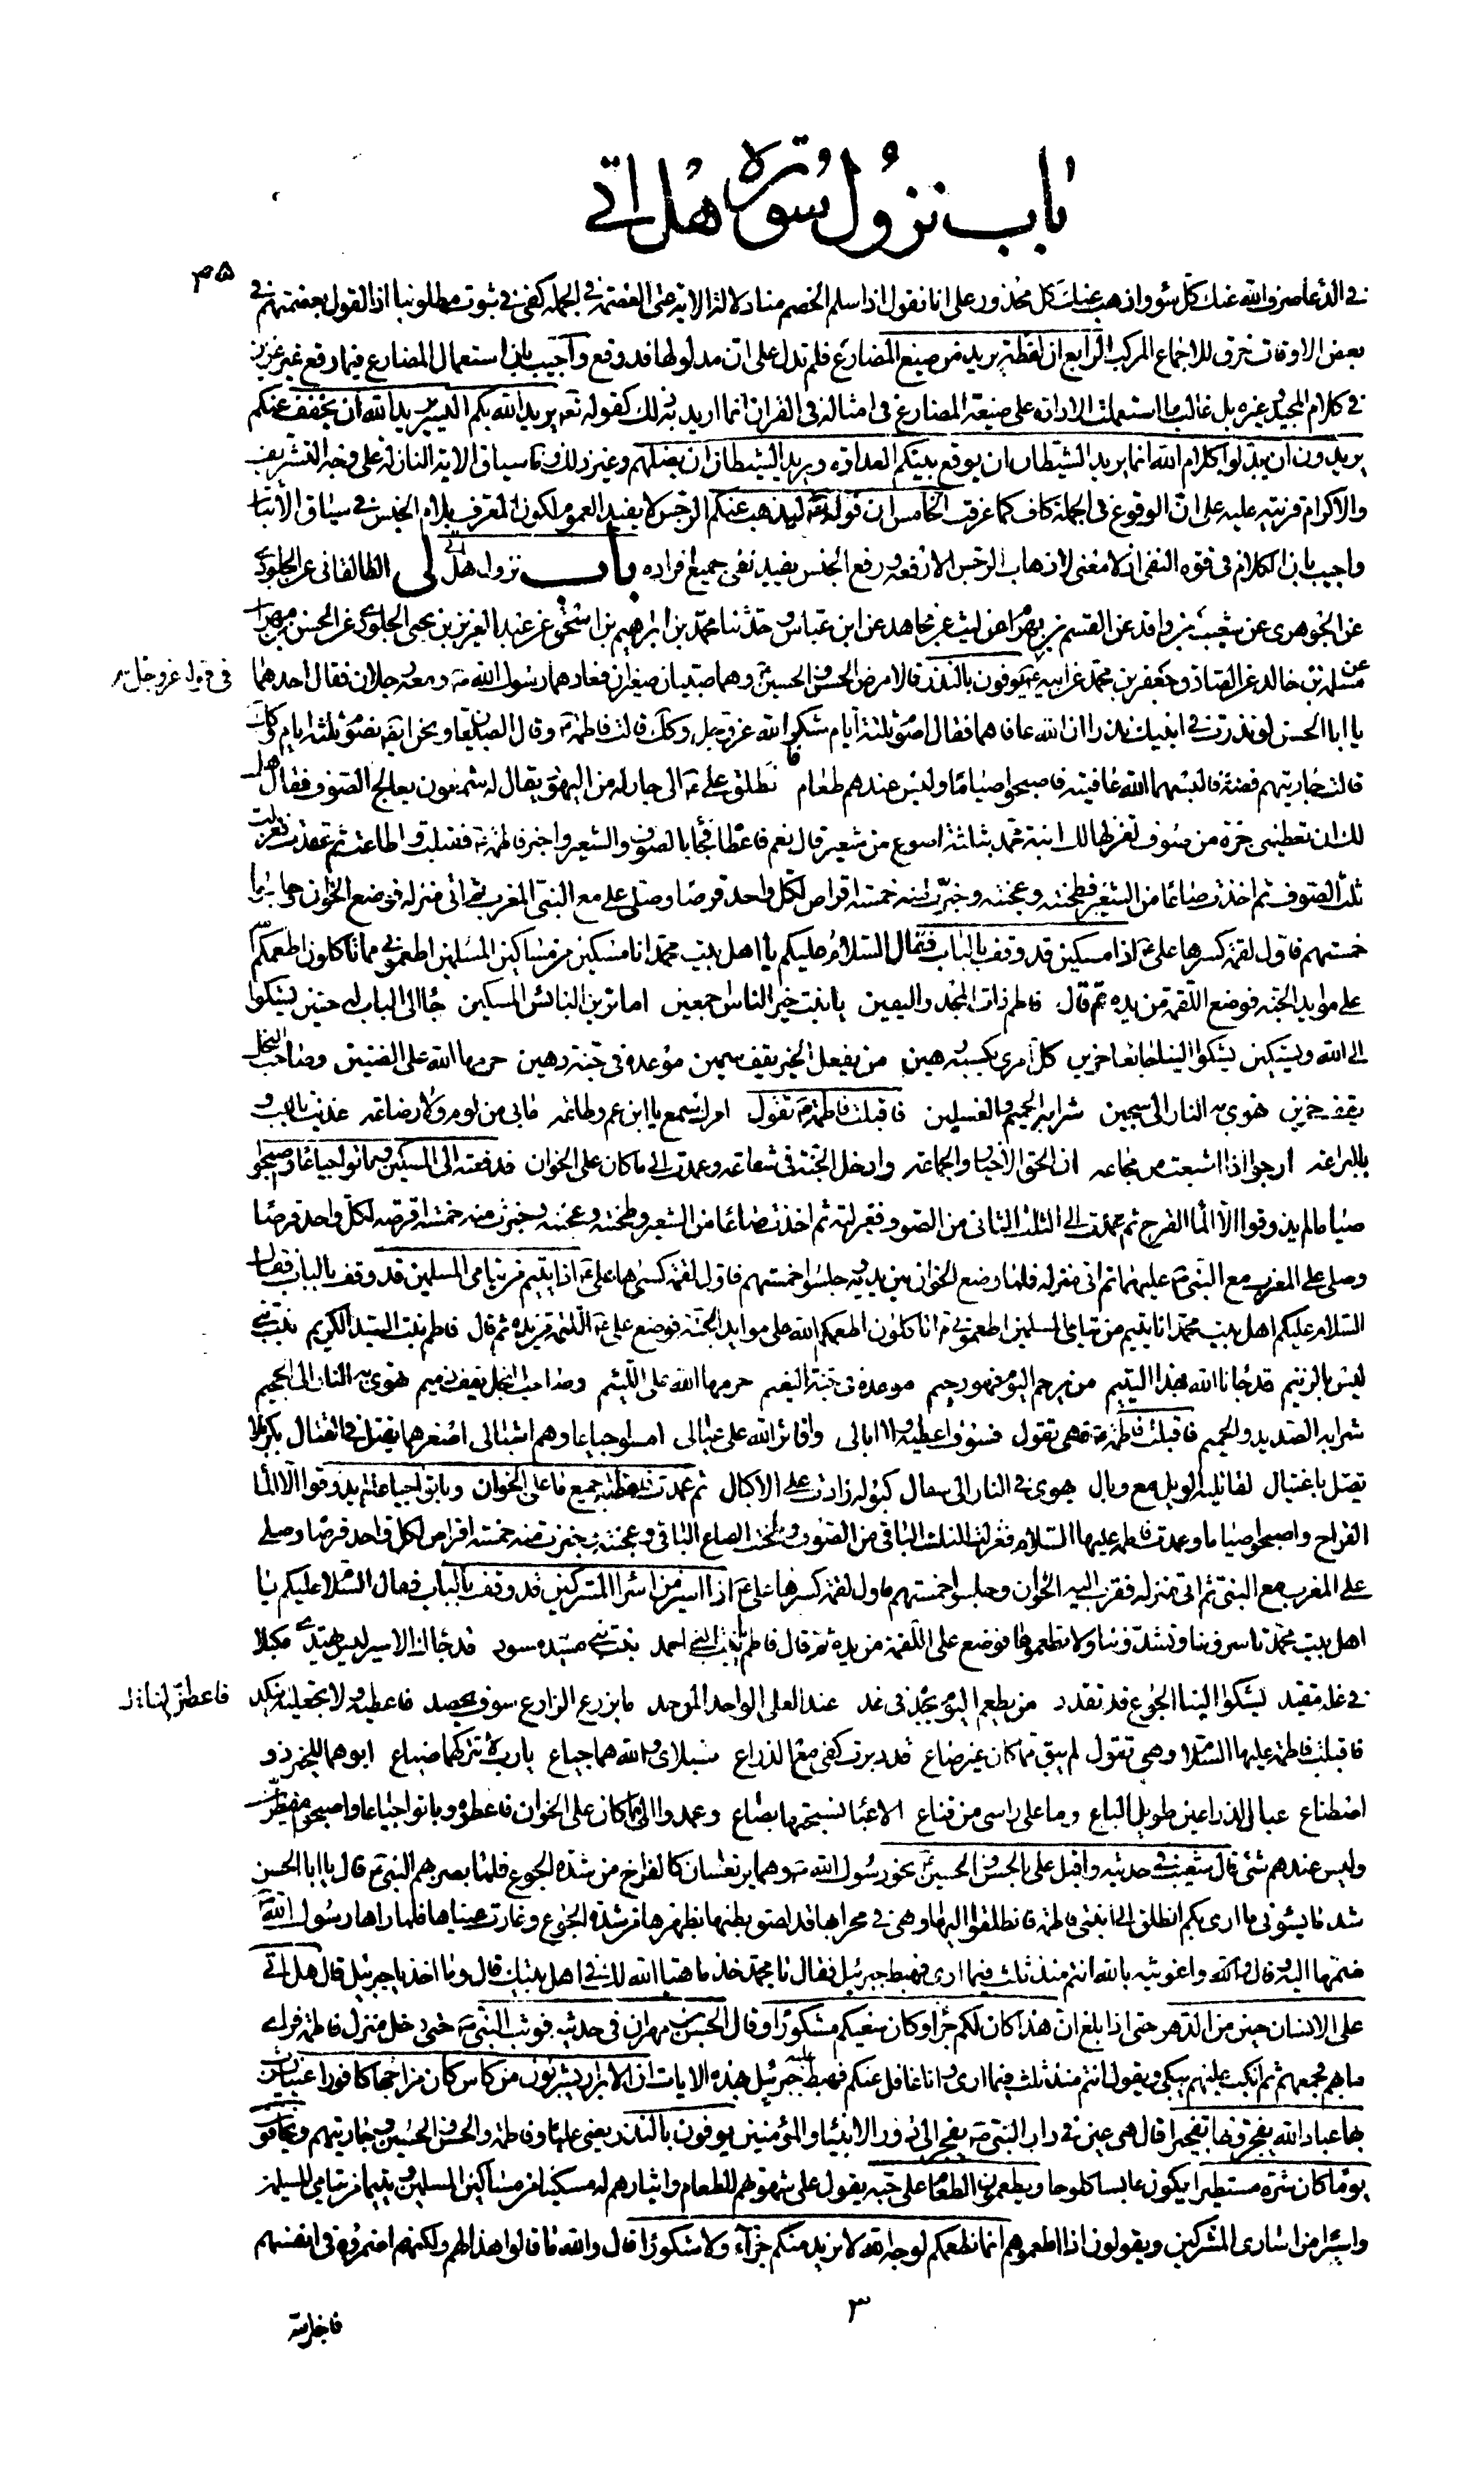 باب نزول سورة هل اتى
٣٥
فى الدعاء صرف الله عنك كل سوء واذهب عنك كل محذور على انا نقول اذا سلم الخصم منا دلالة الاية على العصمة فى الجملة كفى فى ثبوت مطلوبنا اذ القول بعصمتهم فى
بعض الاوقات خرق للاجماع المركب الرابع ان لفظة يريد من صيغ المضارع فلم تدل على ان مدلولها قد وقع واجيب بان استعمال المضارع فيما وقع غير عزيز
فى كلام المجيد وغيره بل غالب ما استعملت الارادة على صيغة المضارع فى امثاله فى القران انما اريد به ذلك كقوله تعه يريد الله بكم اليسر يريد الله ان يخفف عنكم
يريدون ان يبدلوا كلام الله انما يريد الشيطان ان يوقع بينكم العداوة ويريد الشيطان ان يضلهم وغير ذلك وما سياق الاية النازلة على وجه التشريف
والاكرام قرينة عليه على ان الوقوع فى الجملة كاف كما عرفت الخامس ان قوله تعه ليذهب عنكم الرجس لا يفيد العموم لكون المعرف بلام الجنس فى سياق الاثبات
واجيب بان الكلام فى قوة النفى اذ لا معنى لاذهاب الرجس الا رفعه ورفع الجنس يفيد نفى جميع افراده باب نزول هل اتى لى الطالقانى عن الجلودى
عن الجوهرى عن شعيب بن واقد عن القسم بن بهرام عن ليث عن مجاهد عن ابن عباس وحدثنا محمد بن ابراهيم بن اسحق عن عبد العزيز بن يحيى الجلودى عن الحسن بن مهران
عن مسلمة بن خالد عن الصادق جعفر بن محمد عن ابيه ع يوفون بالنذر قالا مرض الحسن والحسين ع وهما صبيان صغيران فعادهما رسول الله ص ومعه رجلان فقال احدهما
فى قوله عز وجل
يا ابا الحسن لو نذرت فى ابنيك نذرا ان الله عافاهما فقال اصوم ثلثة ايام شكرا لله عز وجل وكك قالت فاطمة ع وقال الصبيان و نحن ايضا نصوم ثلثة ايام وكك
قالت جاريتهم فضة فالبسهما الله عافيته فاصبحوا صياما وليس عندهم طعام فانطلق على ع الى جار له من اليهود يقال له شمعون يعالج الصوف فقال هل
لك ان تعطينى جزة من صوف تغزلها لك ابنة محمد بثلثة اصوع من شعير قال نعم فاعطاه فجاء بالصوف والشعير واخبر فاطمة ع فقبلت واطاعت ثم عمدت فغزلت
ثلث الصوف ثم اخذت صاعا من الشعير فطحنته وعجنته وخبزت منه خمسة اقراص لكل واحد قرصا وصلى على مع النبى المغرب ثم اتى منزله فوضع الخوان وجلسوا
خمستهم فاول لقمة كسرها على ع اذا مسكين قد وقف بالباب فقال السلام عليكم يا اهل بيت محمد انا مسكين من مساكين المسلمين اطعمونى مما تاكلون اطعمكم الله
على موايد الجنة فوضع اللقمة من يده ثم قال فاطم ذات المجد واليقين يا بنت خير الناس اجمعين اما ترين البائس المسكين جاء الى الباب له حنين يشكوا
الى الله ويستكين يشكوا الينا جائعا حزين كل امرئ بكسبه رهين من يفعل الخير يقف سمين موعده فى جنة رهين حرمها الله على الضنين وصاحب البخل
يقف حزين تهوى به النار الى سجين شرابه الحميم والغسلين فاقبلت فاطمة ع تقول امرك سمع يا ابن عم وطاعة ما بى من لوم ولا رضاعة غذيت باللب و
بالبراعة ارجو اذا اشبعت من مجاعة ان الحق الاخيار والجماعة وادخل الجنة فى شفاعة وعمدت الى ما كان على الخوان فدفعته الى المسكين وباتوا جياعا واصبحوا
صياما لم يذوقوا الا الماء القراح ثم عمدت الى الثلث الثانى من الصوف فغزلته ثم اخذت صاعا من الشعير وطحنته وعجنته وخبزت منه خمسة اقرصة لكل واحد قرصا
وصلى على المغرب مع النبى ص عليهما ثم اتى منزله فلما وضع الخوان بين يديه وجلسوا خمستهم فاول لقمة كسرها على ع اذا يتيم من يتامى المسلمين قد وقف بالباب فقال
السلام عليكم اهل بيت محمد انا يتيم من يتامى المسلمين اطعمونى مما تاكلون اطعمكم الله على موايد الجنة فوضع على ع اللقمة من يده ثم قال فاطم بنت السيد الكريم بنت نبى
ليس بالزنيم قد جاءنا الله بهذا اليتيم من يرحم اليوم فهو رحيم موعده فى جنة النعيم حرمها الله على اللئيم وصاحب البخل يقف ذميم تهوى به النار الى الجحيم
شرابه الصديد والحميم فاقبلت فاطمة ع وهى تقول فسوف اعطيه ولا ابالى واوثر الله على عيالى امسوا جياعا وهم اشبالى اصغرهما يقتل فى القتال بكربلا
يقتل باغتيال لقاتليه الويل مع وبال يهوى فى النار الى سفال كبوله زادت على الاكبال ثم عمدت فاعطته جميع ما على الخوان وباتوا جياعا لم يذوقوا الا الماء
القراح واصبحوا صياما وعمدت فاطمة عليها السلام فغزلت الثلث الباقى من الصوف وطحنت الصاع الباقى وعجنته وخبزت منه خمسة اقراص لكل واحد قرصا وصلى
على المغرب مع النبى ثم اتى منزله فقرب اليه الخوان وجلسوا خمستهم فاول لقمة كسرها على ع اذا اسير من اسراء المشركين قد وقف بالباب فقال السلام عليكم يا
اهل بيت محمد تاسروننا وتشدوننا ولا تطعموننا فوضع على اللقمة من يده ثم قال فاطم يا بنت النبى احمد بنت نبى سيد مسود قد جاءك الاسير ليس يهتدى مكبلا
فى غله مقيد يشكوا الينا الجوع قد تقدد من يطعم اليوم يجده فى غد عند العلى الواحد الموحد ما يزرع الزارع سوف يحصد فاعطيه ولا تجعليه ينكد
فاقبلت فاطمة عليها السلام وهى تقول لم يبق مما كان غير صاع قد دبرت كفى مع الذراع شبلاى والله هما جياع يا رب لا تتركهما ضياع ابوهما للخير ذو
اصطناع عبل الذراعين طويل الباع وما على راسى من قناع الا عبا نسجتها بصاع وعمدوا الى ما كان على الخوان فاعطوه وباتوا جياعا واصبحوا مفطرين
وليس عندهم شئ قال شعيب فى حديثه واقبل على بالحسن والحسين ع نحو رسول الله ص وهما يرتعشان كالفراخ من شدة الجوع فلما بصر بهم النبى ص قال يا ابا الحسن
شد ما يسؤنى ما ارى بكم انطلق الى ابنتى فاطمة فانطلقوا اليها وهى فى محرابها قد لصق بطنها بظهرها من شدة الجوع وغارت عيناها فلما راها رسول الله
ضمها اليه وقال واغوثاه بالله انتم منذ ثلث فيما ارى فهبط جبرئيل فقال يا محمد خذ ما هيا الله لك فى اهل بيتك قال وما اخذ يا جبرئيل قال هل اتى
على الانسان حين من الدهر حتى اذا بلغ ان هذا كان لكم جزاء وكان سعيكم مشكورا وقال الحسن بن مهران فى حديثه فوثب النبى ص حتى دخل منزل فاطمة فراى
ما بهم فجمعهم ثم انكب عليهم يبكى ويقول انتم منذ ثلث فيما ارى وانا غافل عنكم فهبط عليه جبرئيل بهذه الايات ان الابرار يشربون من كاس كان مزاجها كافورا عينا يشرب
بها عباد الله يفجرونها تفجيرا قال هى عين فى دار النبى ص يفجر الى دور الانبياء والمؤمنين يوفون بالنذر يعنى عليا وفاطمة والحسن والحسين وجاريتهم ويخافون
يوما كان شره مستطيرا يكون عابسا كلوحا ويطعمون الطعام على حبه يقول على شهوتهم للطعام وايثارهم له مسكينا من مساكين المسلمين ويتيما من يتامى المسلمين
واسيرا من اسارى المشركين ويقولون اذا اطعموهم انما نطعمكم لوجه الله لا نريد منكم جزاء ولا شكورا قال والله ما قالوا هذا لهم ولكنهم اضمروه فى انفسهم
٣
فاخبر الله